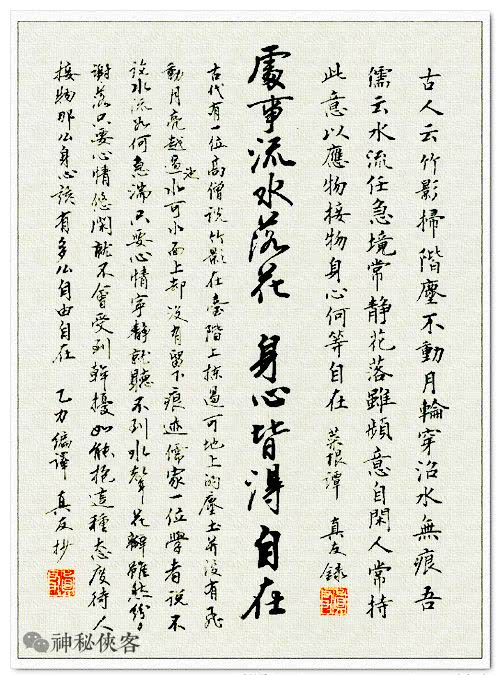 古人云竹影掃階塵不動月輪穿沼水無痕吾
儒云水流任急境常靜花落雖頻意自閑人常持
此意以應物接物身心何等自在 菜根譚 真友錄
處事流水落花 身心皆得自在
古代有一位高僧說竹影在臺階上掠過可地上的塵土并沒有飛
動月亮越過池水可水面上却沒有留下痕迹儒家一位學者說不
論水流如何急湍只要心情寧靜就聽不到水聲花瓣雖然紛紛
謝落只要心情悠閑就不會受到幹擾如能抱這種态度待人
接物那么身心該有多么自由自在 乙力編譯 真友抄
神秘俠客